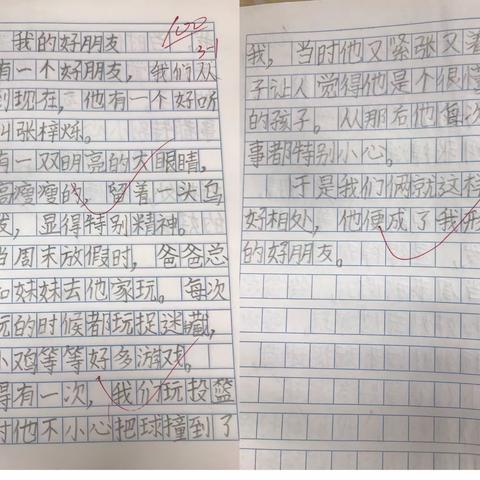 我的好朋友
100
3-1
有一个好朋友，我们从
到现在，他有一个好听
叫张梓烁。
有一双明亮的大眼睛，
高瘦瘦的，留着一头乌
发，显得特别精神。
当周末放假时，爸爸总
和妹妹去他家玩。每次
玩的时候都玩捉迷藏，
小鸡等等好多游戏。
得有一次，我们玩投篮
时他不小心把球撞到了
我，当时他又紧张又着
子让人觉得他是个很懂
的孩子。从那后他每次
事都特别小心。
于是我们俩就这样
好相处，他便成了我形
的好朋友。